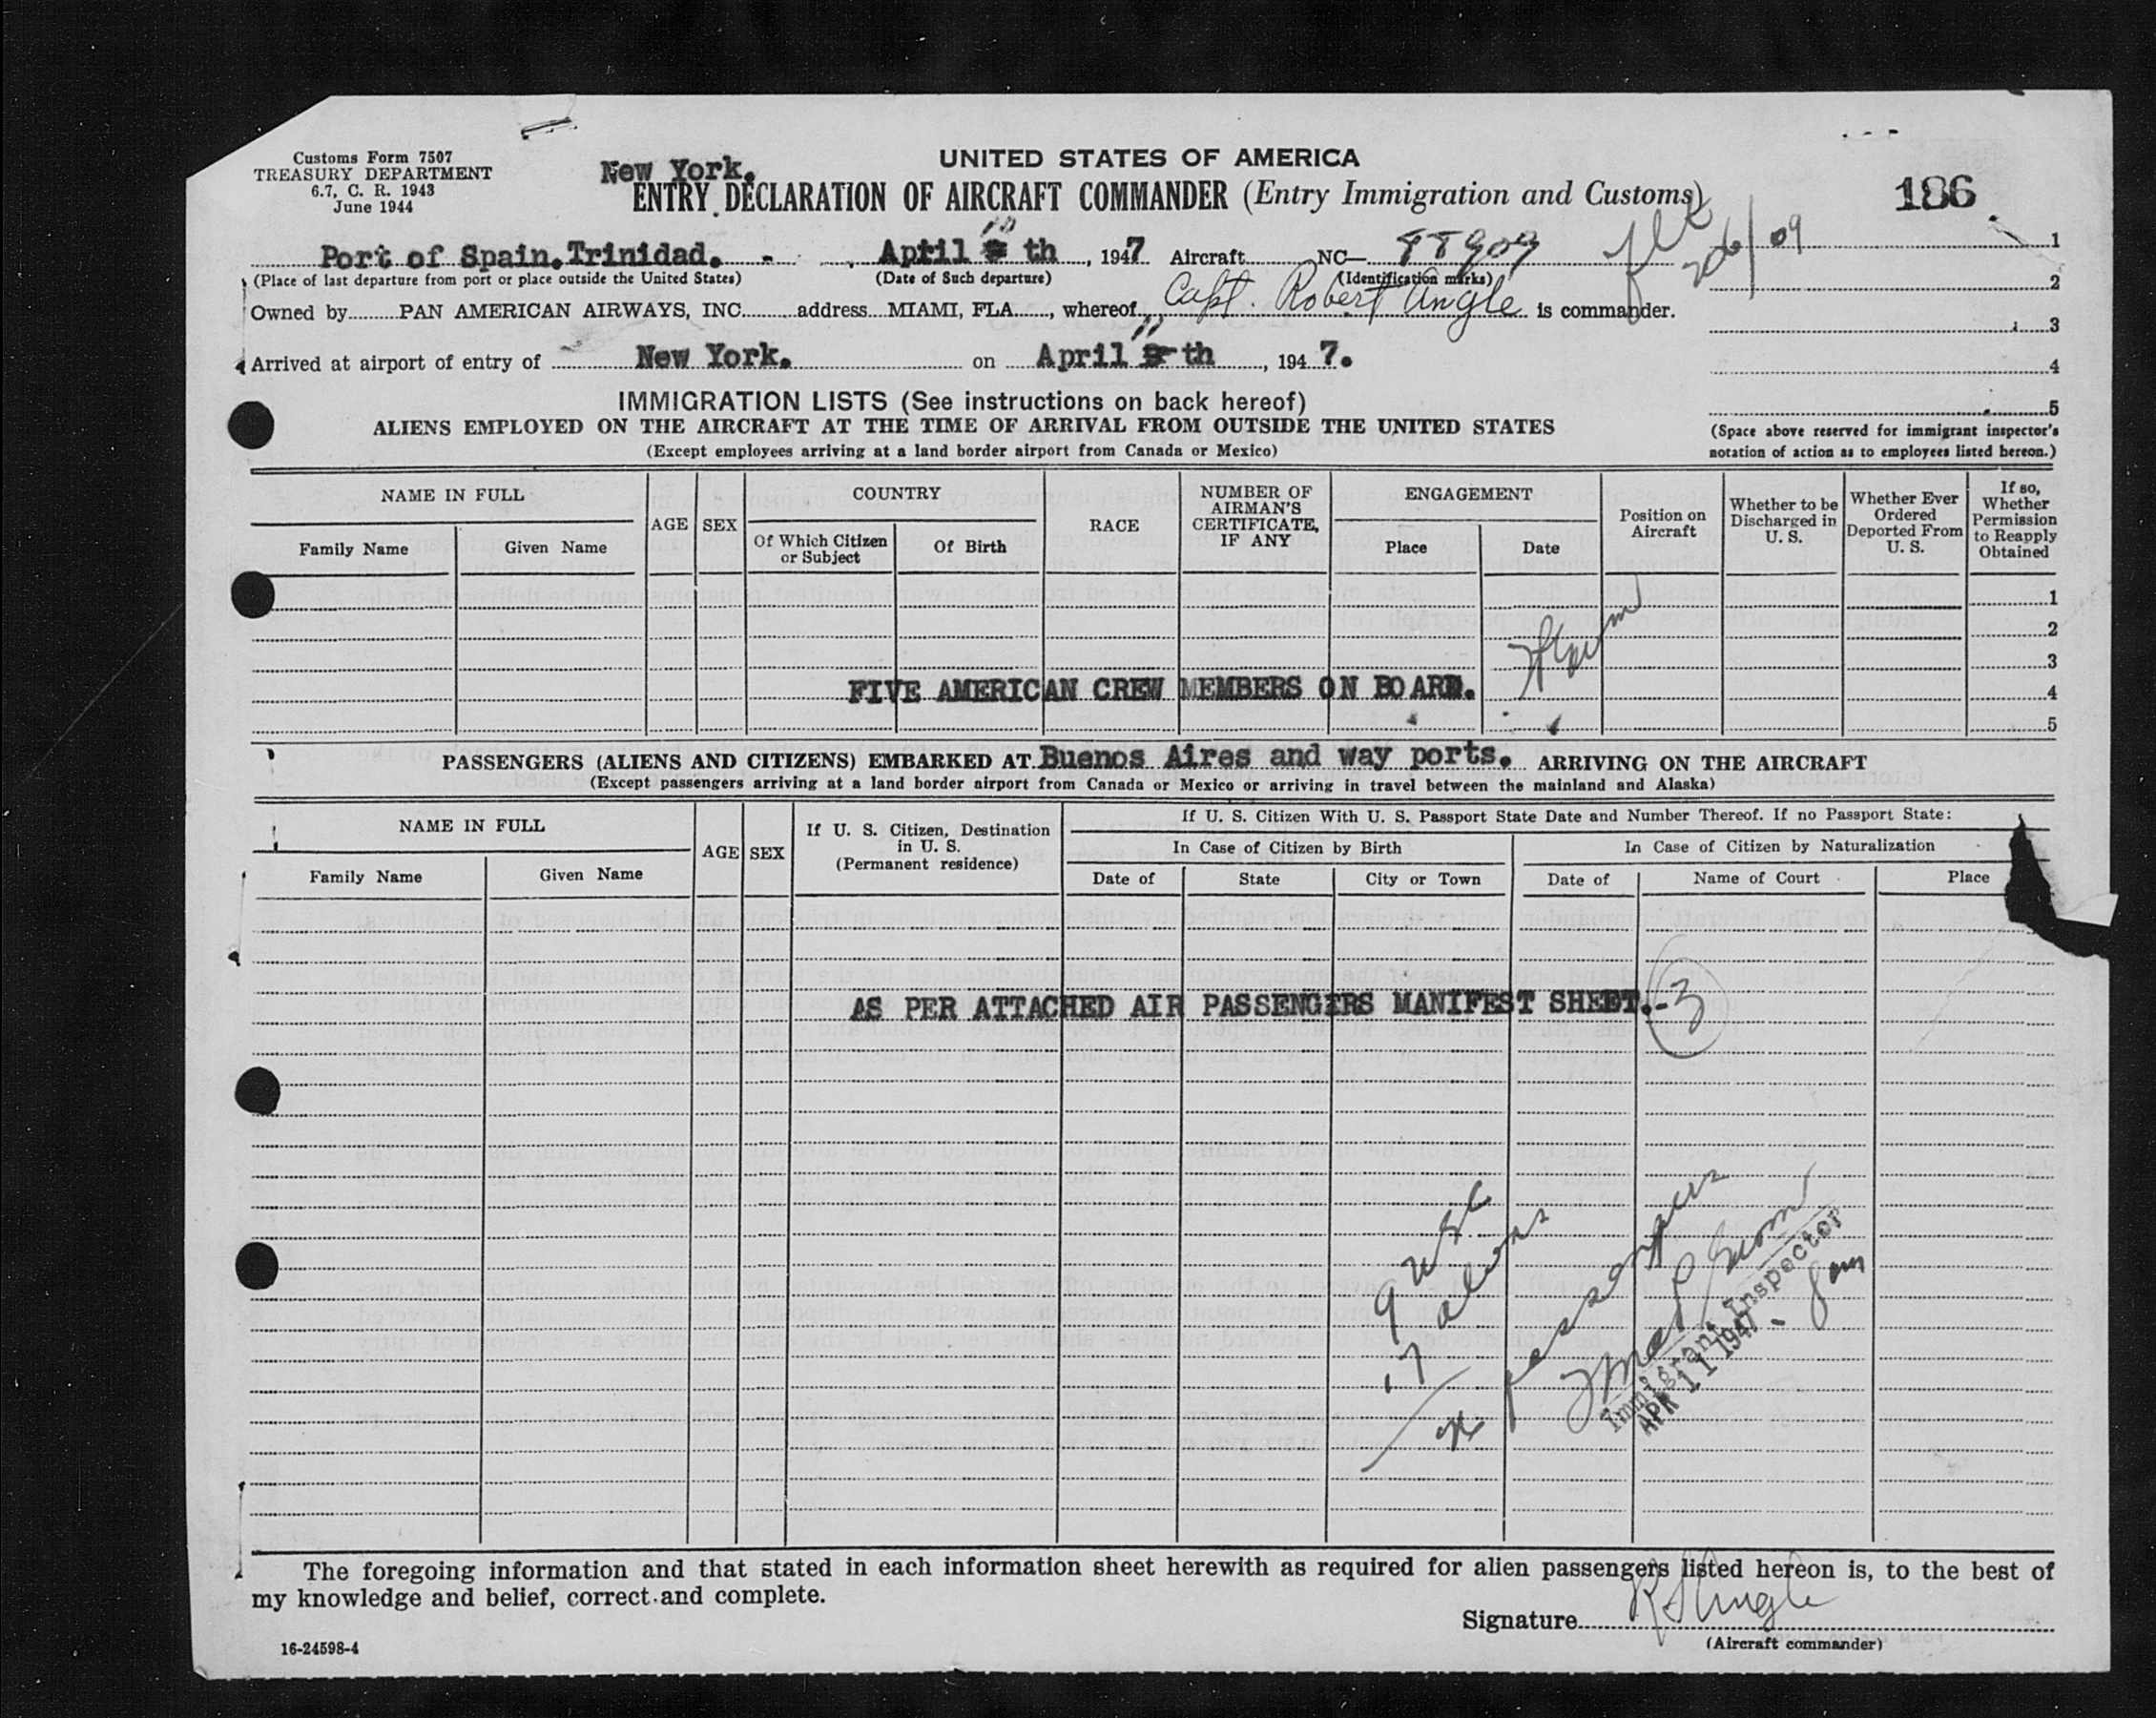 Customs Form 7507
TREASURY DEPARTMENT
6.7, C. R. 1943
June 1944
UNITED STATES OF AMERICA
New York.
ENTRY DECLARATION OF AIRCRAFT COMMANDER (Entry Immigration and Customs)
186
Port of Spain.Trinidad. - April 10 th, 1947 Aircraft NC— 88909
(Place of last departure from port or place outside the United States) (Date of Such departure) (Identification marks)
206/09
Owned by PAN AMERICAN AIRWAYS, INC. address MIAMI, FLA., whereof Capt. Robert Angle is commander.
Arrived at airport of entry of New York. on April 11 th, 1947.
1
2
3
4
5
(Space above reserved for immigrant inspector's
notation of action as to employees listed hereon.)
IMMIGRATION LISTS (See instructions on back hereof)
ALIENS EMPLOYED ON THE AIRCRAFT AT THE TIME OF ARRIVAL FROM OUTSIDE THE UNITED STATES
(Except employees arriving at a land border airport from Canada or Mexico)
NAME IN FULL
Family Name
Given Name
AGE
SEX
COUNTRY
Of Which Citizen
or Subject
Of Birth
RACE
NUMBER OF
AIRMAN'S
CERTIFICATE,
IF ANY
ENGAGEMENT
Place
Date
Position on
Aircraft
Whether to be
Discharged in
U. S.
Whether Ever
Ordered
Deported From
U. S.
If so,
Whether
Permission
to Reapply
Obtained
1
2
3
FIVE AMERICAN CREW MEMBERS ON BOARD.
4
5
PASSENGERS (ALIENS AND CITIZENS) EMBARKED AT Buenos Aires and way ports. ARRIVING ON THE AIRCRAFT
(Except passengers arriving at a land border airport from Canada or Mexico or arriving in travel between the mainland and Alaska)
NAME IN FULL
Family Name
Given Name
AGE
SEX
If U. S. Citizen, Destination
in U. S.
(Permanent residence)
If U. S. Citizen With U. S. Passport State Date and Number Thereof. If no Passport State:
In Case of Citizen by Birth
Date of
State
City or Town
In Case of Citizen by Naturalization
Date of
Name of Court
Place
AS PER ATTACHED AIR PASSENGERS MANIFEST SHEET.- 3
9 USC
17 aliens
26 passengers
Immigrant Inspector
APR 11 1947
The foregoing information and that stated in each information sheet herewith as required for alien passengers listed hereon is, to the best of
my knowledge and belief, correct and complete.
Signature R S Angle
(Aircraft commander)
16-24598-4